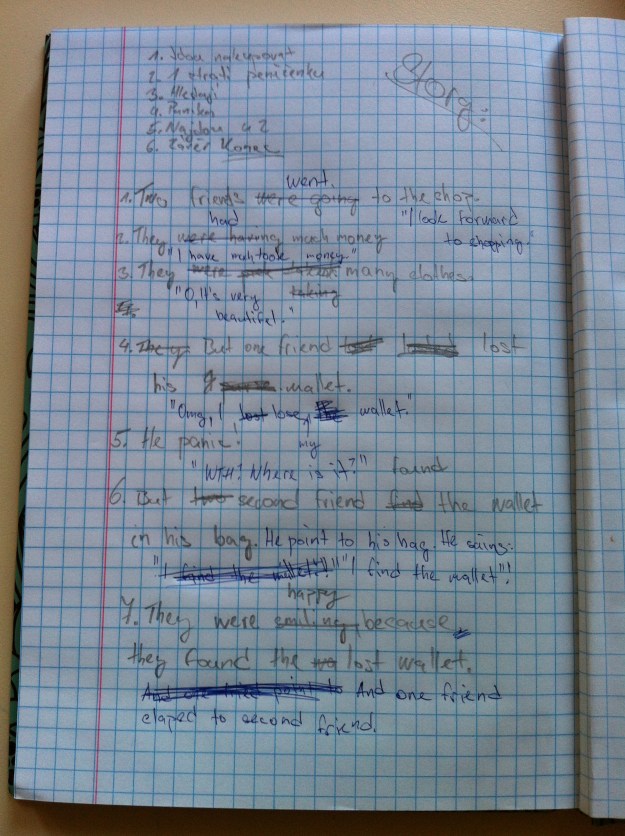 1. Jdou nakupovat
2. 1 ztratí peněženku
3. Hledají
4. Panika
5. Najdou u 2
6. Závěr Konec
Story:
went.
1. Two friends were going to the shop.
had "I look forward
2. They were having much money to shopping."
"I have much money"
3. They were many clothes.
"O, It's very taking
beautiful."
4. They But one friend lost
his wallet.
"Omg, I lost lose, my wallet."
5. He panic!
"WTH? Where is it?" found
6. But two second friend find the wallet
in his bag. He point to his bag. He saing:
"I find the wallet"!" "I find the wallet"!
happy
7. They were smiling, because
they found the lost wallet.
And one friend point to And one friend
claped to second friend.